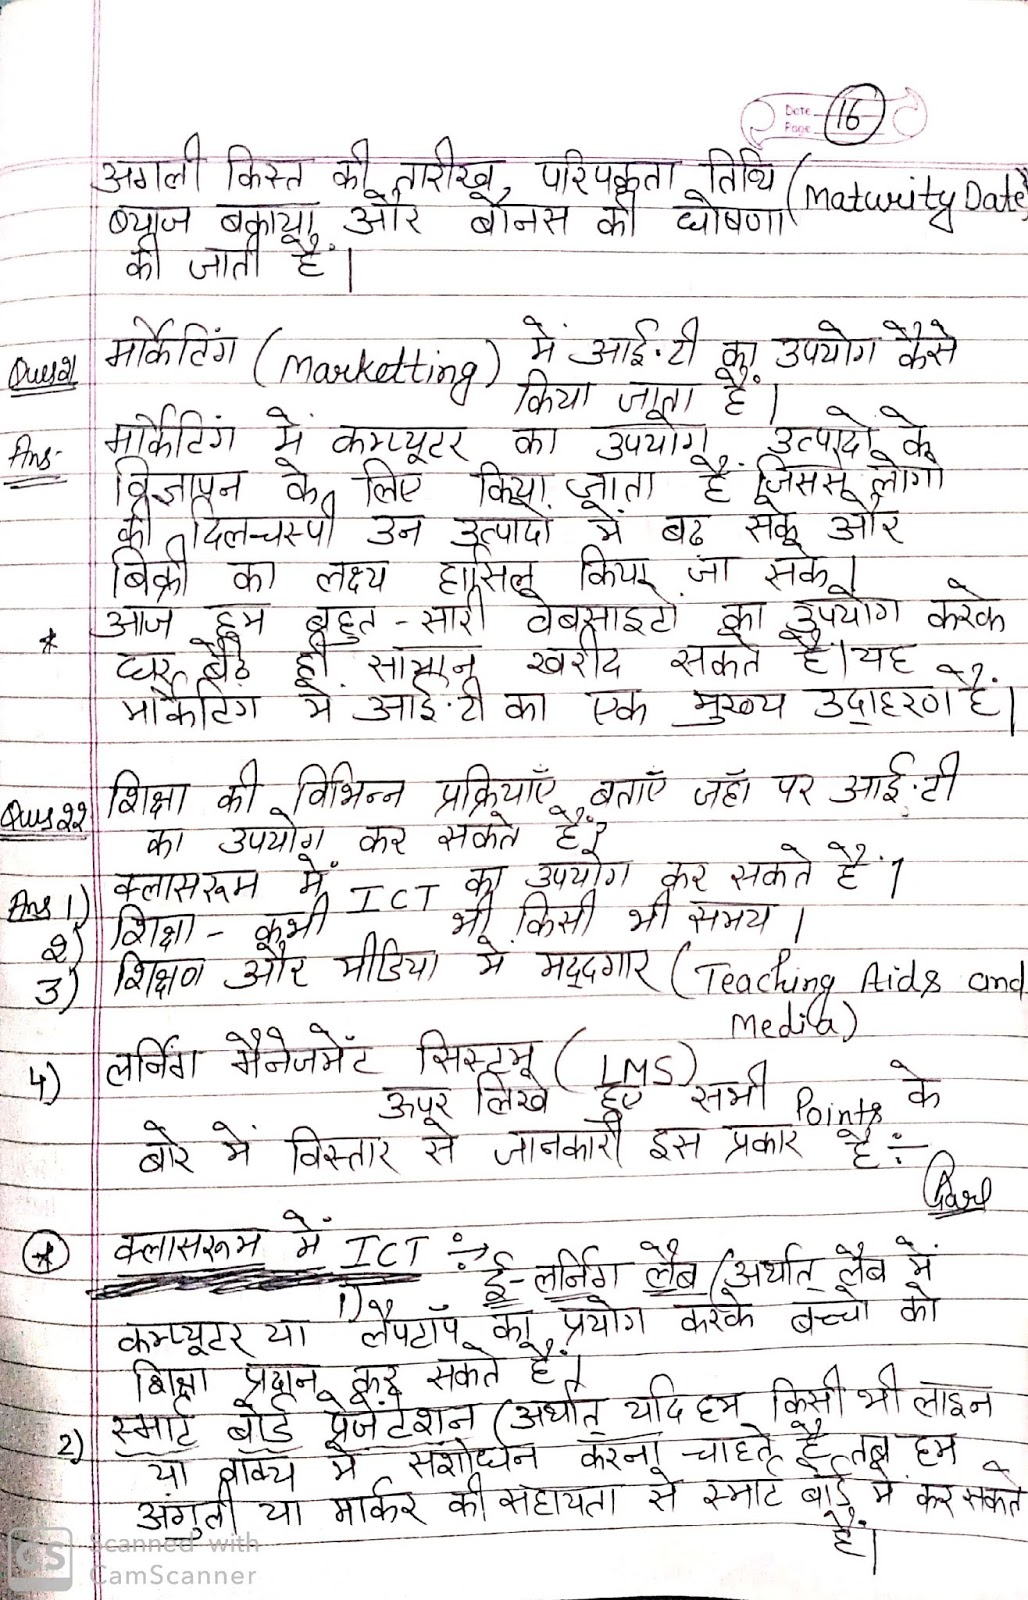 Date
Page 16
अगली किस्त की तारीख, परिपक्वता तिथि (Maturity Date)
ब्याज बकाया और बोनस की घोषणा
की जाती है।
Ques 21 मार्केटिंग (Marketting) में आई.टी का उपयोग कैसे
किया जाता है।
Ans- मार्केटिंग में कम्प्यूटर का उपयोग उत्पादों के
विज्ञापन के लिए किया जाता है जिससे लोगो
की दिलचस्पी उन उत्पादों में बढ सके और
बिक्री का लक्ष्य हासिल किया जा सके।
* आज हम बहुत-सारी वेबसाइटो का उपयोग करके
घर बैठे ही सामान खरीद सकते है। यह
मार्केटिंग मे आई.टी का एक मुख्य उदाहरण है।
Ques 22 शिक्षा की विभिन्न प्रक्रियाएँ बताएँ जहाँ पर आई.टी
का उपयोग कर सकते हैं?
Ans 1) क्लासरूम में ICT का उपयोग कर सकते है।
2) शिक्षा - कभी भी किसी भी समय।
3) शिक्षण और मीडिया मे मद्दगार (Teaching Aids and
Media)
4) लर्निंग मैनेजमेंट सिस्टम (LMS)
ऊपर लिखे हुए सभी Points के
बारे में विस्तार से जानकारी इस प्रकार है ÷-
* क्लासरूम में ICT ÷→
1) ई-लर्निंग लैब (अर्थात् लैब में
कम्प्यूटर या लैपटॉप का प्रयोग करके बच्चो को
शिक्षा प्रदान कर सकते है।
2) स्मार्ट बोर्ड प्रेजेंटेशन (अर्थात् यदि हम किसी भी लाइन
या वाक्य मे संशोधन करना चाहते है तब हम
अंगुली या मार्कर की सहायता से स्मार्ट बोर्ड मे कर सकते
है।
CS Scanned with
CamScanner